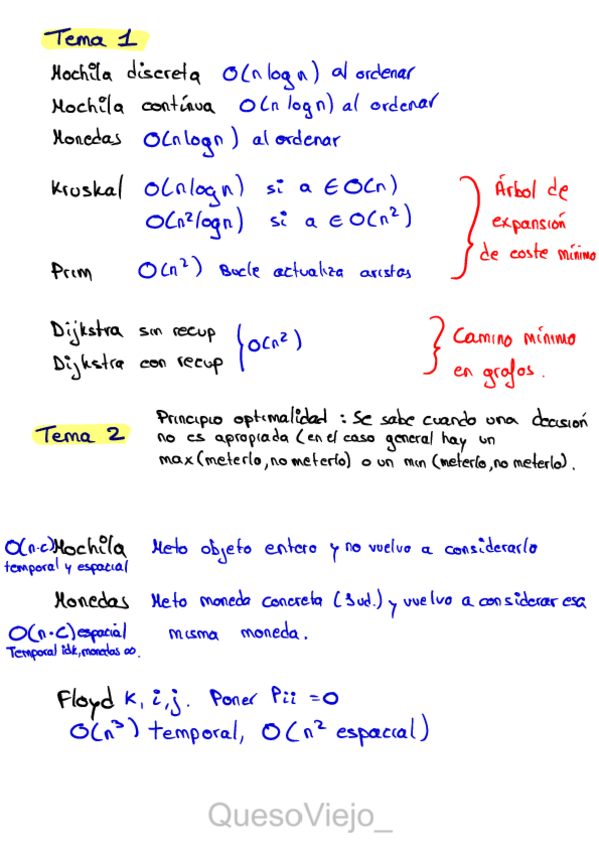 Tema 1
Mochila discreta O(n log n) al ordenar
Mochila contínua O(n log n) al ordenar
Monedas O(n logn) al ordenar
Kruskal O(n logn) si a ∈ O(n)
O(n²logn) si a ∈ O(n²)
Árbol de
expansión
de coste mínimo
Prim O(n²) Bucle actualiza aristas
Dijkstra sin recup
Dijkstra con recup
O(n²)
Camino mínimo
en grafos.
Tema 2
Principio optimalidad : Se sabe cuando una decisión
no es apropiada (en el caso general hay un
max(meterlo, no meterlo) o un min (meterlo, no meterlo).
O(n·c) Mochila Meto objeto entero y no vuelvo a considerarlo
temporal y espacial
Monedas Meto moneda concreta (1ud.) y vuelvo a considerar esa
misma moneda.
O(n·C) espacial
Temporal idk, monedas ∞.
Floyd k, i, j. Poner Pii = 0
O(n³) temporal, O(n² espacial)
QuesoViejo_